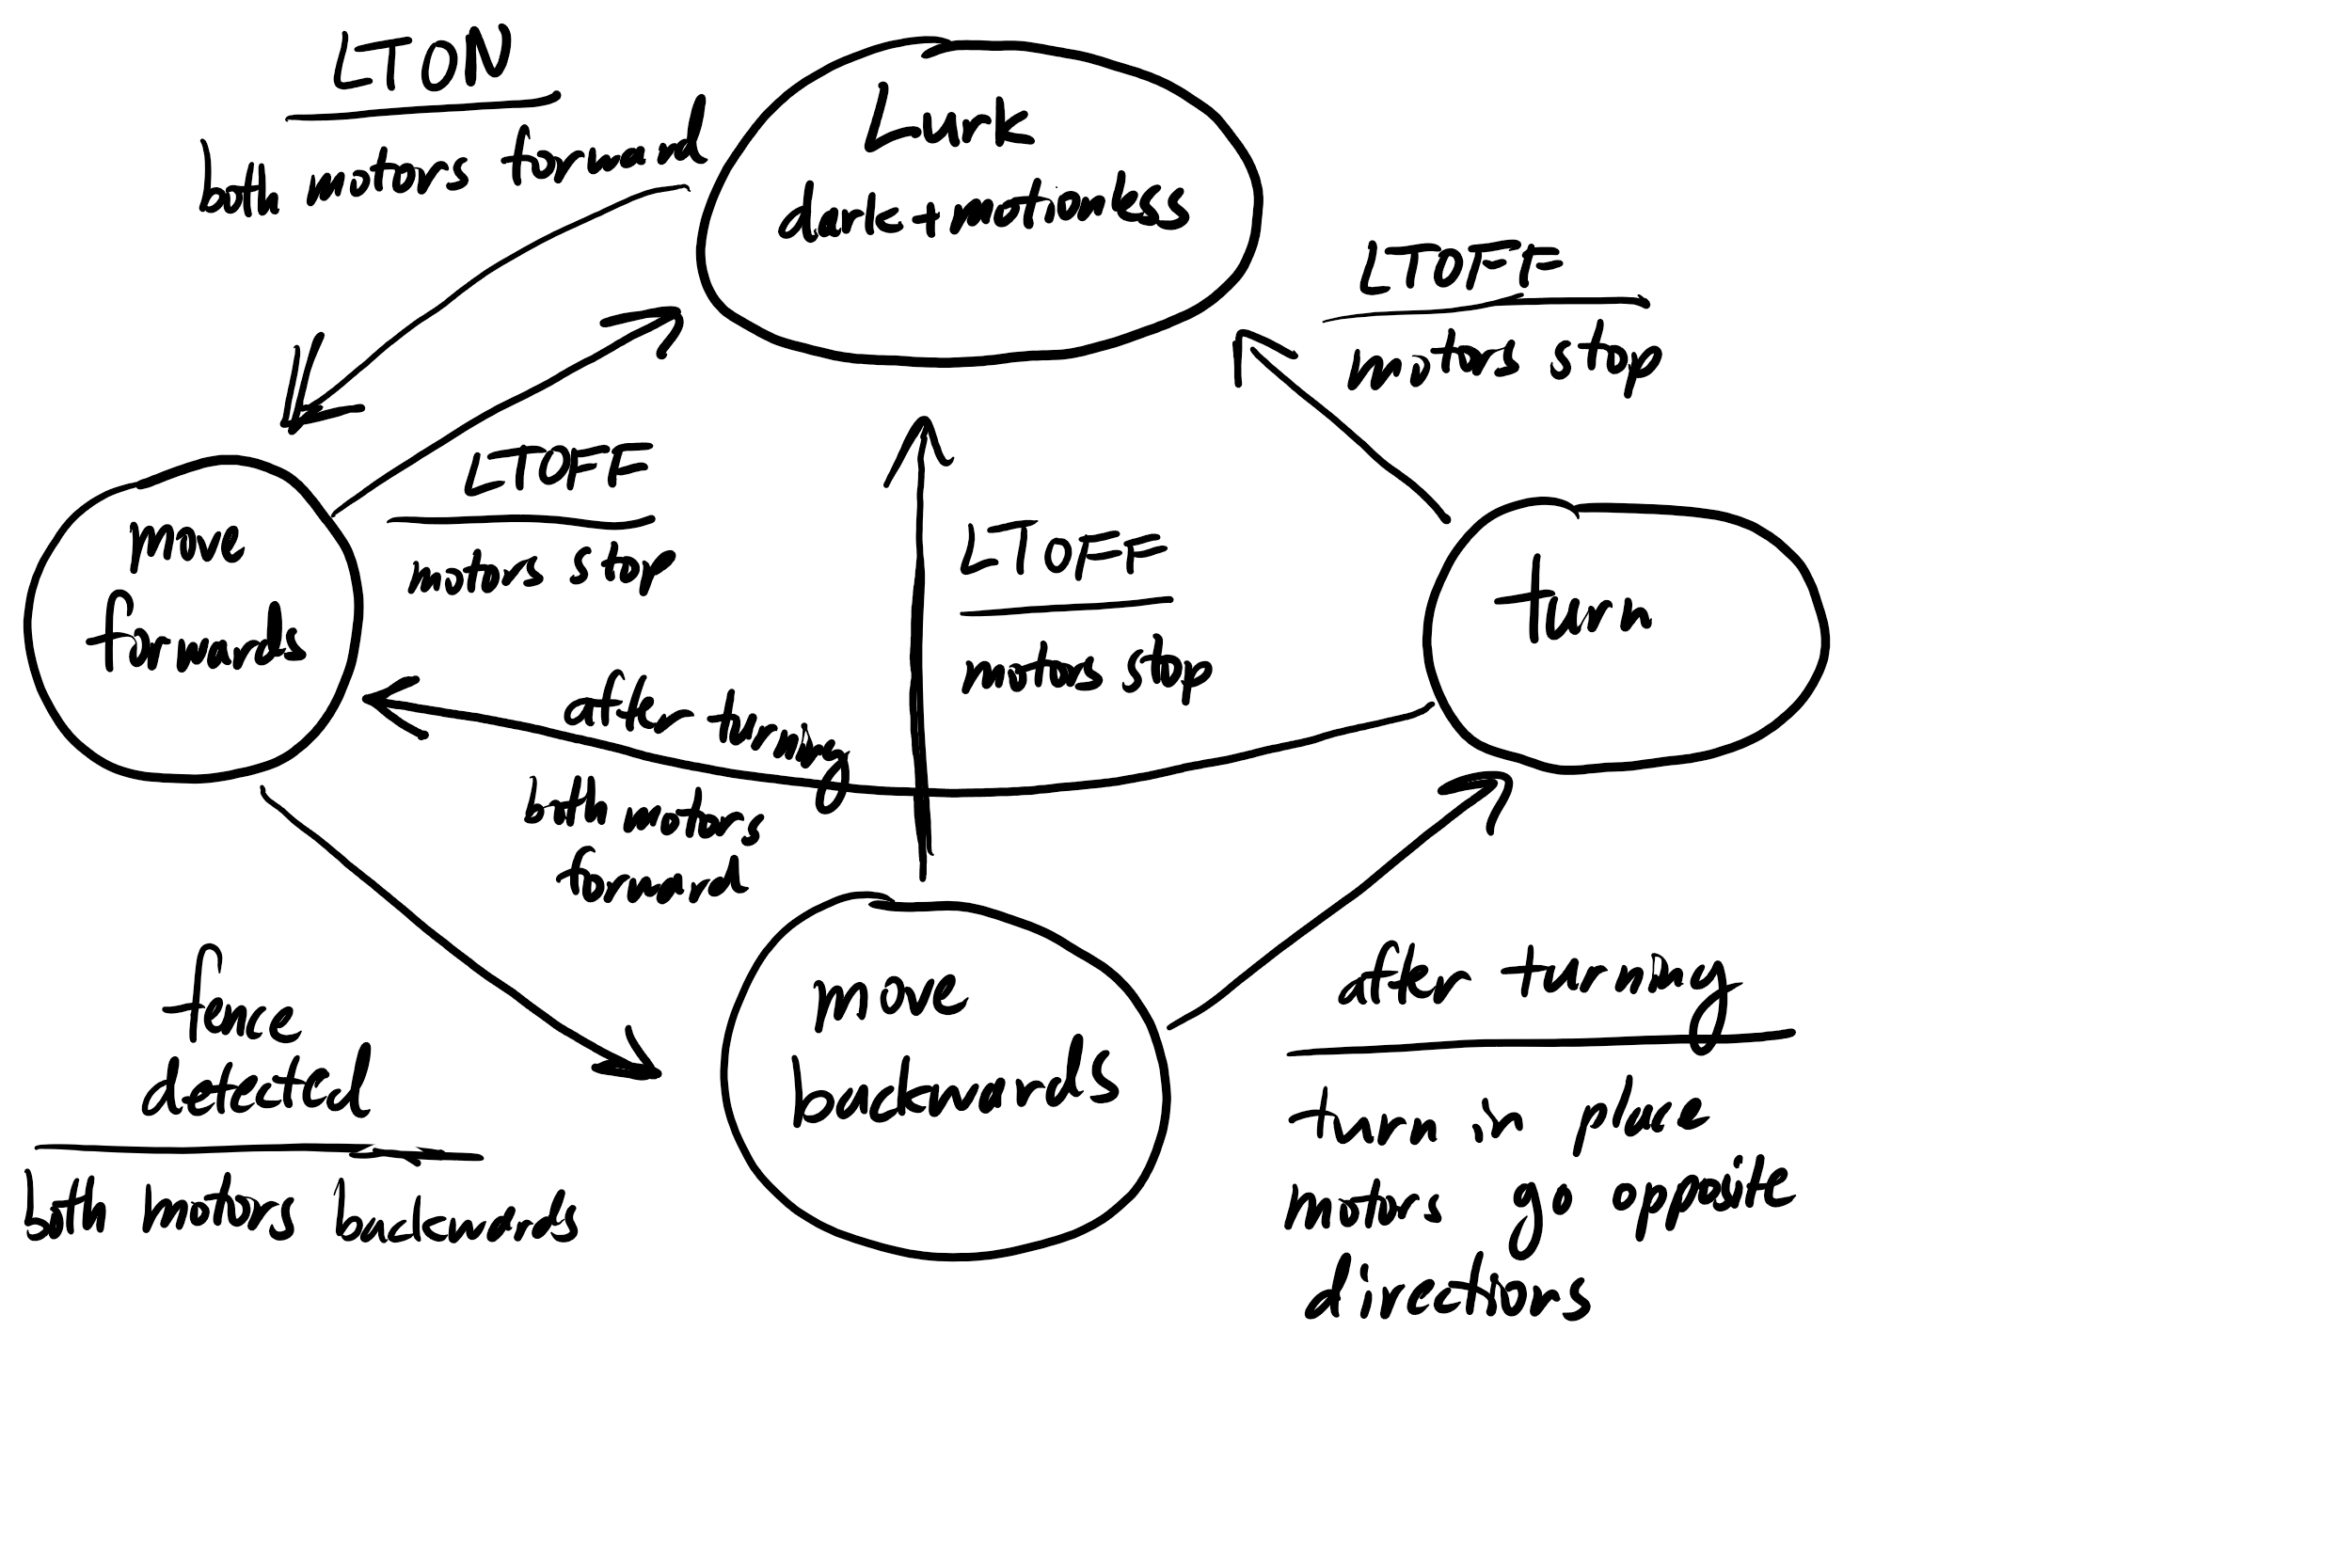 LTON
both motors forward
Lurk
dark + motionless
LTOFF
motors stop
move
forwards
LTOFF
motors stop
LTOFF
motors stop
turn
after turning
both motors
forward
move
backwards
fence
detected
both motors backwards
after turning
turn in place
motors go opposite
directions